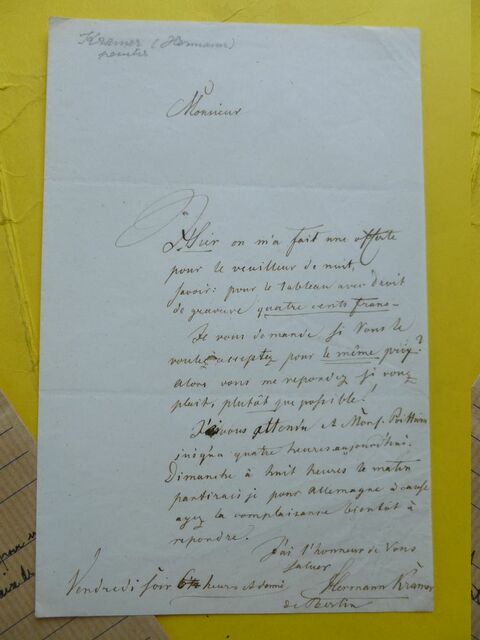 Kramer (Hermann)
peintre
Monsieur
Hier on m'a fait une offerte
pour le veuilleur de nuit,
savoir: pour le tableau avec droit
de gravure quatre cents francs
Je vous demande si vous le
voulez acceptez pour le même prix?
alors vous me repondez si vous
plait, plutôt que possible!
vous attendu et Mons.
jusqu'a quatre heures aujourdhui.
Dimanche à huit heures le matin
partirais je pour Allemagne à cause
ayez la complaisance bientôt à
repondre.
J'ai l'honneur de Vous
saluer
Vendredi soir heures
Hermann Kramer
de Berlin